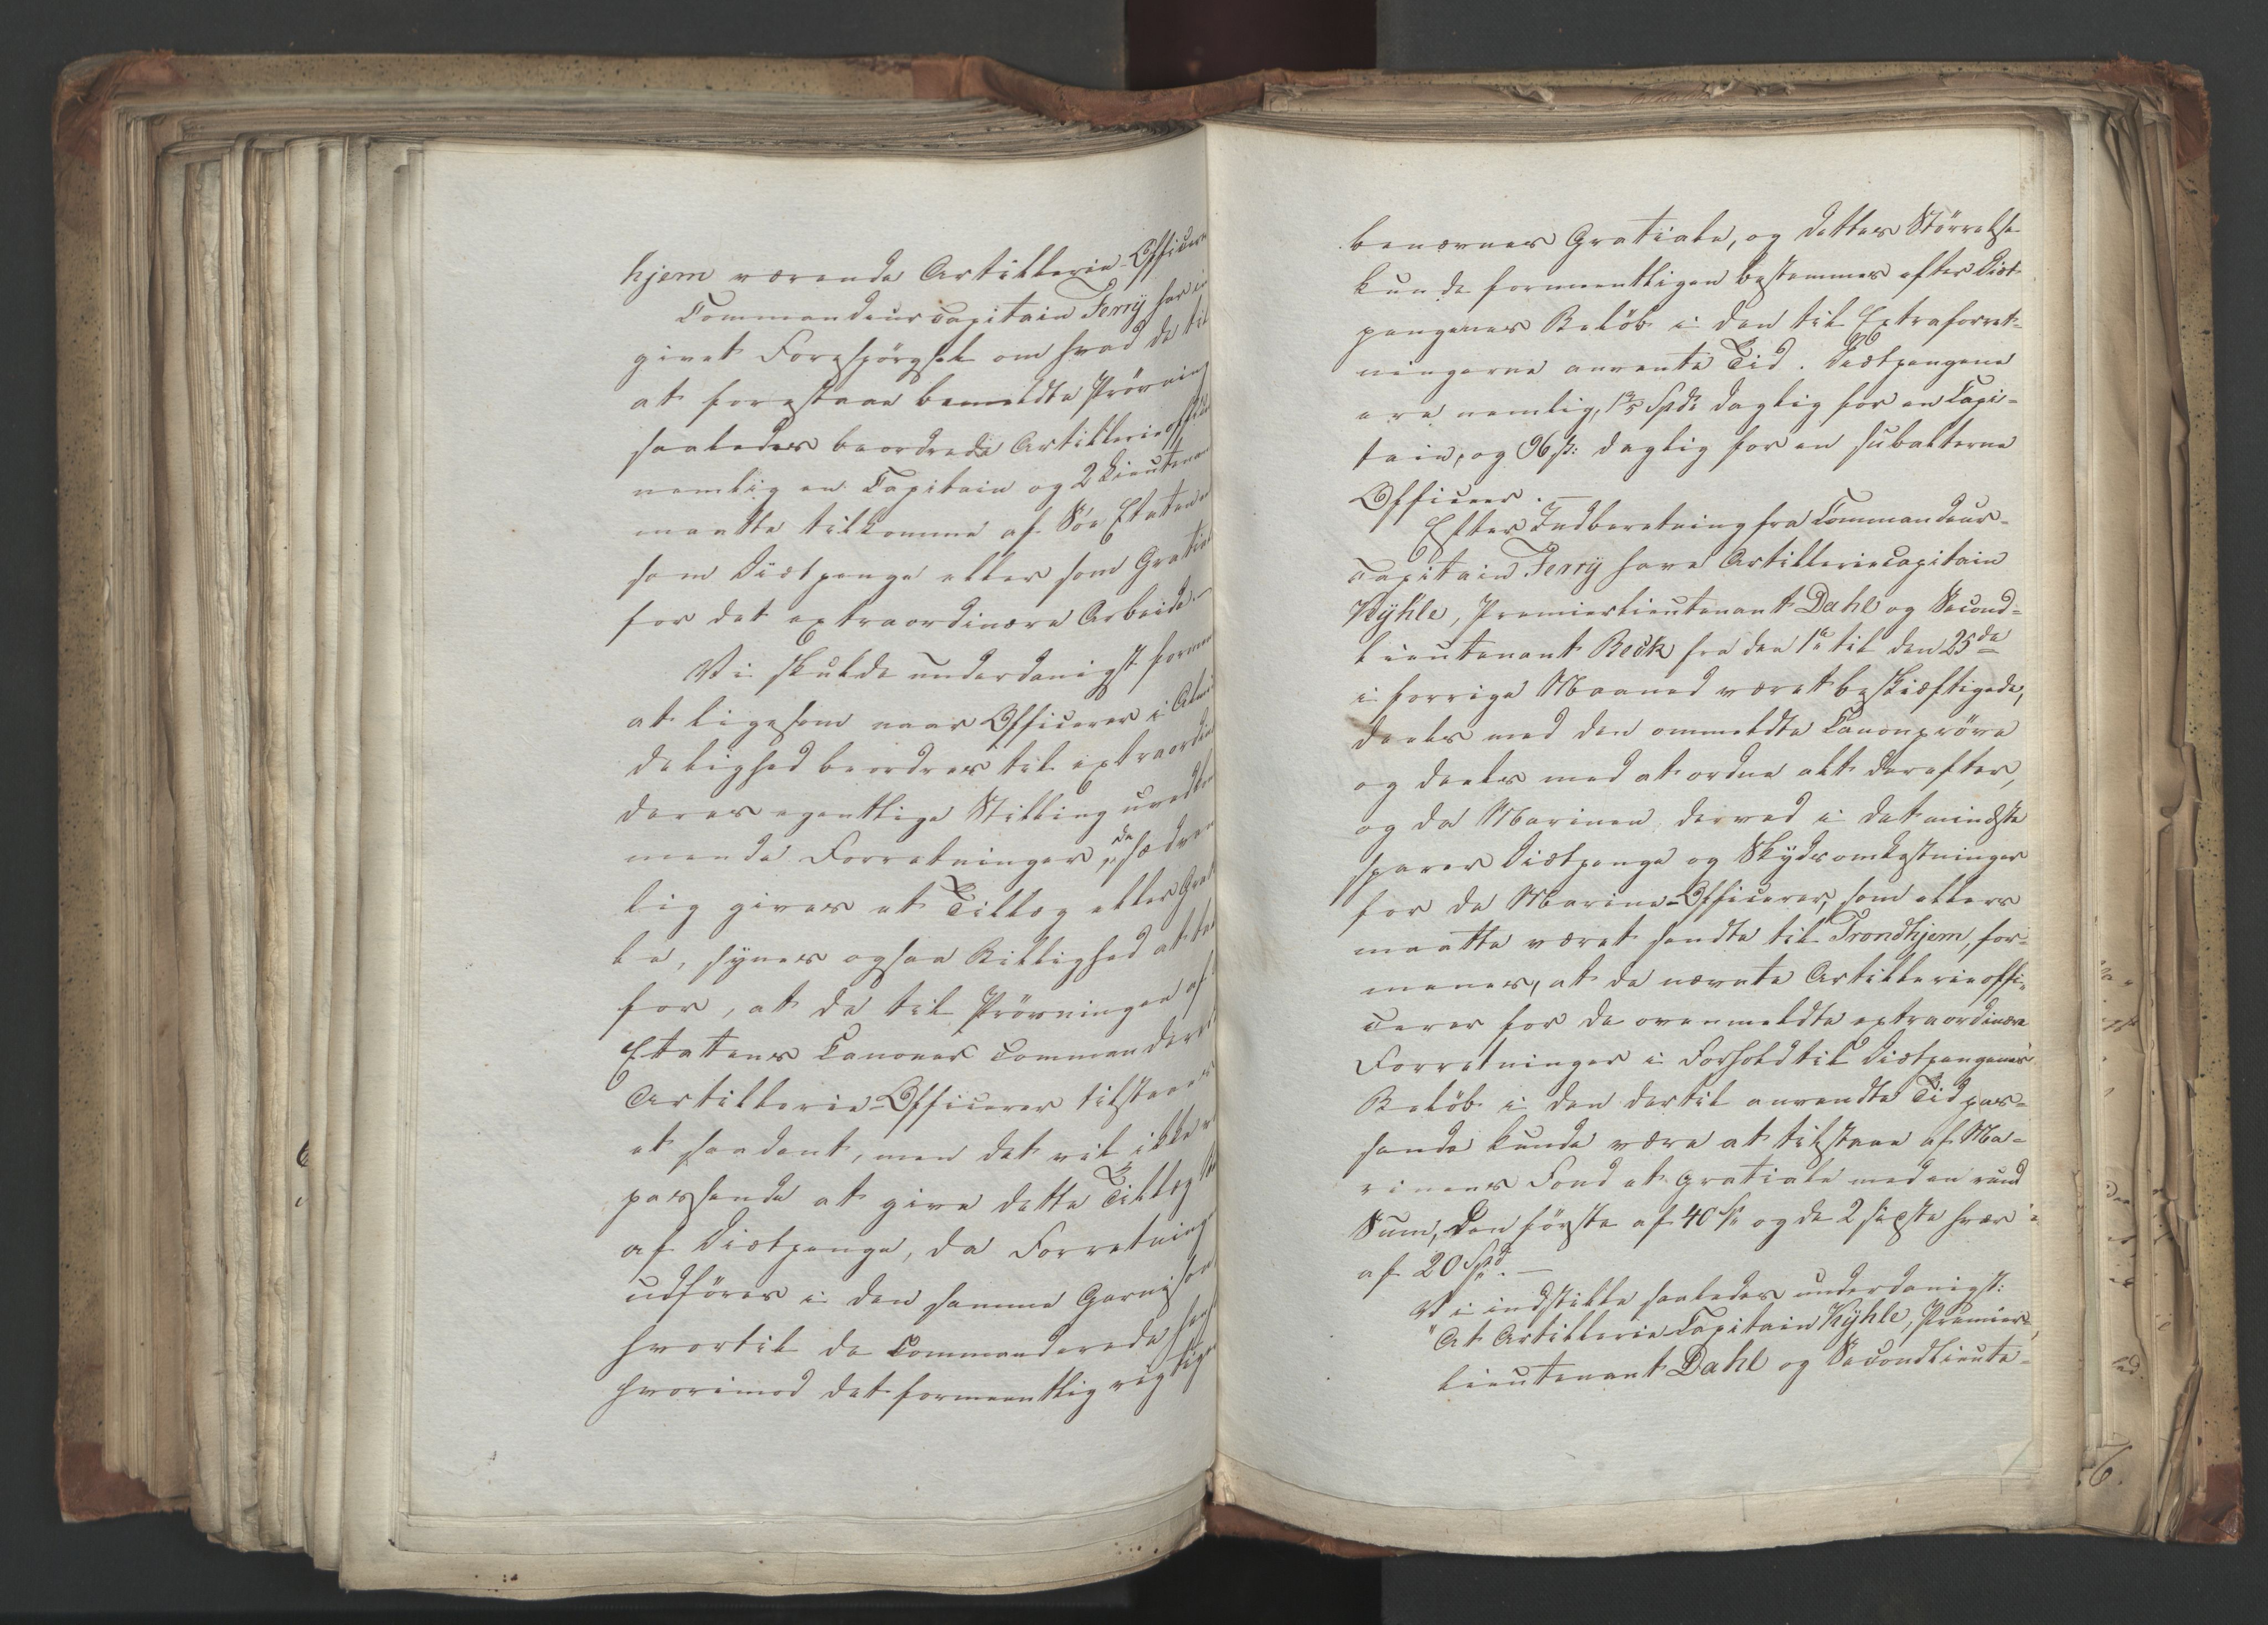 hjem værende Artillerie-Officerer
Commandeurcapitain Ferrÿ har i
givet Forespörgsel om hvad de til
at forestaae bemeldte Prövning
saaledes beordrede Artillerieoff
nemlig en Capitain og 2 Lieutenan
maatte tilkomme af Söe Etaten
som Diætpenge eller som Gratia
for det extraordinære Arbeide. –
Vi skulde underdanigst forme
at ligesom naar Officerer i Alm
delighed beordres til extraordi
deres egentlige Stilling uvedk
mende Forretninger, de sædvan
lig gives et Tillæg eller Grat
le, synes ogsaa Billighed at ta
for, at de til Prövningen af
Etatens Canoner Commandere
Artillerie-Officerer tilstaaes
et saadant, men det vil ikke v
passende at give dette Tillæg
af Diætpenge, da Forretning
udföres i den samme Garnison
hvortil de Commanderede
hvorimod det formeentlig rigtig
benævnes Gratiale, og dettes Störrelse
kunde formeentligen bestemmes efter Diæt
pengenes Belöb i den til Extraforret-
ningerne anvente Tid. Diætpengene
ere nemlig, Spd daglig for en Capi-
tain, og 96 s: daglig for en subalterne
Officeer. –
Efter Indberetning fra Commandeur-
Capitain Ferrÿ have Artilleriecapitain
Kÿhle, Premierlieutenant Dahl og Second-
lieutenant Beck fra den 1e til den 25de
i forrige Maaned været beskiæftigede,
deels med den ommeldte Canonpröve
og deels med at ordne alt derefter,
og da Marinen derved i det mindste
sparer Diætpenge og Skydsomkostninger
for de Marine-Officerer, som ellers
maatte været sendte til Trondhjem, for-
menes, at de nævnte Artillerieoffi-
cerer for de ovenmeldte extraordinære
Forretninger i Forhold til Diætpengenes
Belöb i den dertil anvendte Tid pas-
sende kunde være at tilstaae af Ma-
rinens Fond et Gratiale med en rund
Sum, den förste af 40 Sp og de 2 sidste hver
af 20 Spd. –
Vi indstille saaledes underdanigst:
"At Artillerie Capitain Kÿhle, Premier-
lieutenant Dahl og Secondlieute-